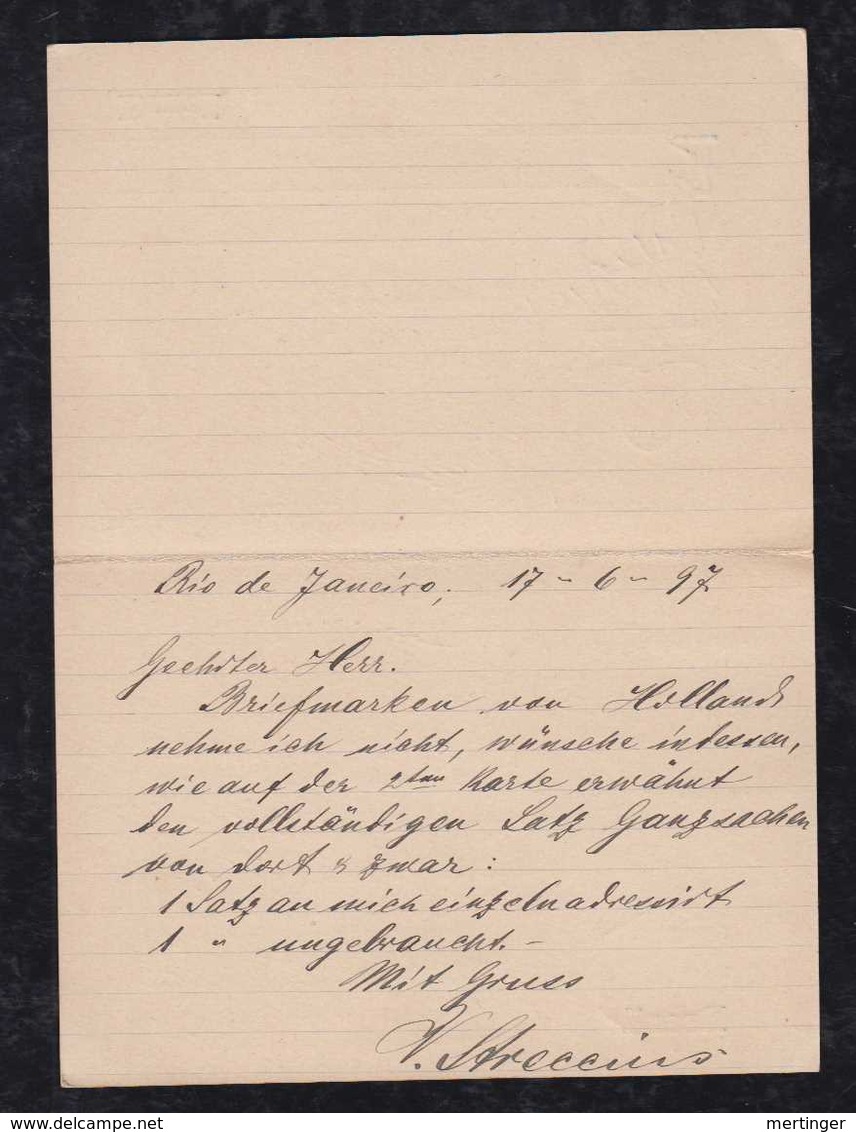 Rio de Janeiro, 17 - 6 - 97
Geehrter Herr.
Briefmarken von Holland
nehme ich nicht, wünsche indessen,
wie auf der 2ten Karte erwähnt
den vollständigen Satz Ganzsachen
von dort & zwar:
1 Satz an mich einzeln adressirt
1 " ungebraucht. -
Mit Gruss
mertinger